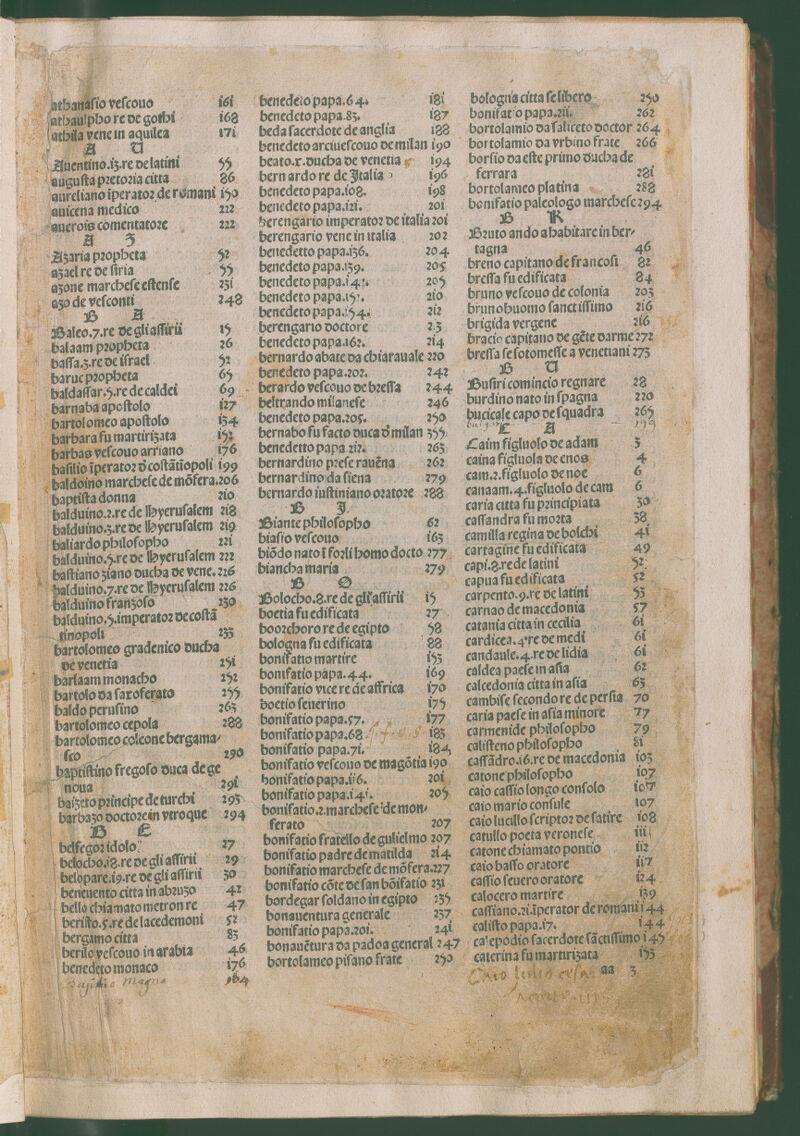 athanasio vescouo 161
athaulpho re de gothi 168
athila vene in aquilea 171
A U
Auentino.13.re de latini 55
augusta pretoria citta 86
aureliano ĩperator de romani 150
auicena medico 222
auerois comentatore 222
A Z
Azaria propheta 52
azael re de siria 55
azone marchese estense 231
azo de vesconti 248
B A
Baleo.7.re de gli assirii 15
balaam propheta 26
bassa.3.re de israel 52
baruc propheta 65
baldassar.5.re de caldei 69
barnaba apostolo 127
bartolomeo apostolo 134
barbara fu martirizata 152
barbas vescouo arriano 176
basilio ĩperator d̃ costãtiopoli 199
baldoino marchese de mõfera.206
baptista donna 210
balduino.2.re de Hyerusalem 218
balduino.3.re de Hyerusalem 219
baliardo philosopho 221
balduino.5.re de Hyerusalem 222
bastiano ziano ducha de vene.226
balduino.7.re de Hyerusalem 226
balduino franzoso 230
balduino.5.imperator de costã
tinopoli 233
bartolomeo gradenico ducha
de venetia 251
barlaam monacho 252
bartolo da saxoferato 255
baldo perusino 263
bartolomeo cepola 288
bartolomeo coleone bergama/
sco 290
baptistino fregoso duca de ge
noua 291
baizeto principe de turchi 293
barbazo doctore in vtroque 294
B E
belfegor idolo 27
belocho.18.re de gli assirii 29
belopare.19.re de gli assirii 30
beneuento citta in abruzo 42
bello chiamato metron re 47
beristo.5.re de lacedemoni 52
bergamo citta 83
berilo vescouo in arabia 46
benedeto monaco 176
164
benedeto papa.64. 181
benedeto papa.83. 187
beda sacerdote de anglia 188
benedeto arciuescouo de milan 190
beato.1.ducha de venetia 194
bernardo re de Italia 196
benedeto papa.108. 198
benedeto papa.121. 201
berengario imperator de italia 201
berengario vene in italia 202
benedetto papa.136. 204
benedeto papa.139. 205
benedeto papa.14. 205
benedeto papa.15. 210
benedeto papa.154. 212
berengario doctore 2 3
benedeto papa.162. 214
bernardo abate da chiarauale 220
benedeto papa.202. 242
berardo vescouo de bressa 244
beltrando milanese 246
benedeto papa.205. 250
bernabo fu facto duca d̃ milan 355
benedetto papa 212. 263
bernardino prese rauẽna 262
bernardino da siena 279
bernardo iustiniano oratore 288
B I
Biante philosopho 62
biasio vescouo 163
biõdo nato ĩ forli homo docto 277
biancha maria 279
B O
Bolocho.8.re de gli assirii 15
boetia fu edificata 27
boorchoro re de egipto 58
bologna fu edificata 88
bonifatio martire 153
bonifatio papa.44. 169
bonifatio vice re de affrica 170
boetio seuerino 175
bonifatio papa.57. 177
bonifatio papa.68 183
bonifatio papa.71. 184
bonifatio vescouo de magõtia 190
bonifatio papa.116. 201
bonifatio papa.141. 205
bonifatio.2.marchese de mon/
ferato 207
bonifatio fratello de gulielmo 207
bonifatio padre de matilda 214
bonifatio marchese de mõfera.227
bonifatio cõte de san bõifatio 231
bordegar soldano in egipto 235
bonauentura generale 237
bonifatio papa.201. 241
bonauẽtura da padoa general 247
bortolameo pisano frate 250
bologna citta se libero 250
bonifatio papa.211. 262
bortolamio da saliceto doctor 264
bortolamio da vrbino frate 266
borsio da este primo ducha de
ferrara 281
bortolameo platina 288
bonifatio paleologo marchese 294
B R
Bruto ando a habitare in ber/
tagna 46
breno capitano de francosi 82
bressa fu edificata 84
bruno vescouo de colonia 203
brunobuomo sanctissimo 216
brigida vergene 216
bracio capitano de gẽte darme 272
bressa se sotomesse a venetiani 273
B U
Busiri comincio regnare 28
burdino nato in spagna 220
bucicale capo de squadra 265
C A
Caim figluolo de adam 3
caina figluola de enos 4
cam.2.figluolo de noe 6
canaam.4.figluolo de cam 6
caria citta fu principiata 30
cassandra fu morta 38
camilla regina de bolchi 41
cartagine fu edificata 49
capi.8.re de latini 52
capua fu edificata 52
carpento.9.re de latini 53
carnao de macedonia 57
catania citta in cecilia 61
cardicea.4.re de medi 61
candaule.4.re de lidia 61
caldea paese in asia 62
calcedonia citta in asia 63
cambise secondo re de persia 70
caria paese in asia minore 77
carmenide philosopho 79
calisteno philosopho 81
cassãdro.16.re de macedonia 103
catone philosopho 107
caio cassio longo consolo 107
caio mario consule 107
caio lucillo scriptor de satire 108
catullo poeta veronese 111
catone chiamato pontio 112
caio basso oratore 117
cassio seuero oratore 124
calocero martire 139
cassiano.21.ĩperator de romani 144
calisto papa.17. 144
calepodio sacerdote sãctissimo 145
caterina fu martirizata 153
aa 3